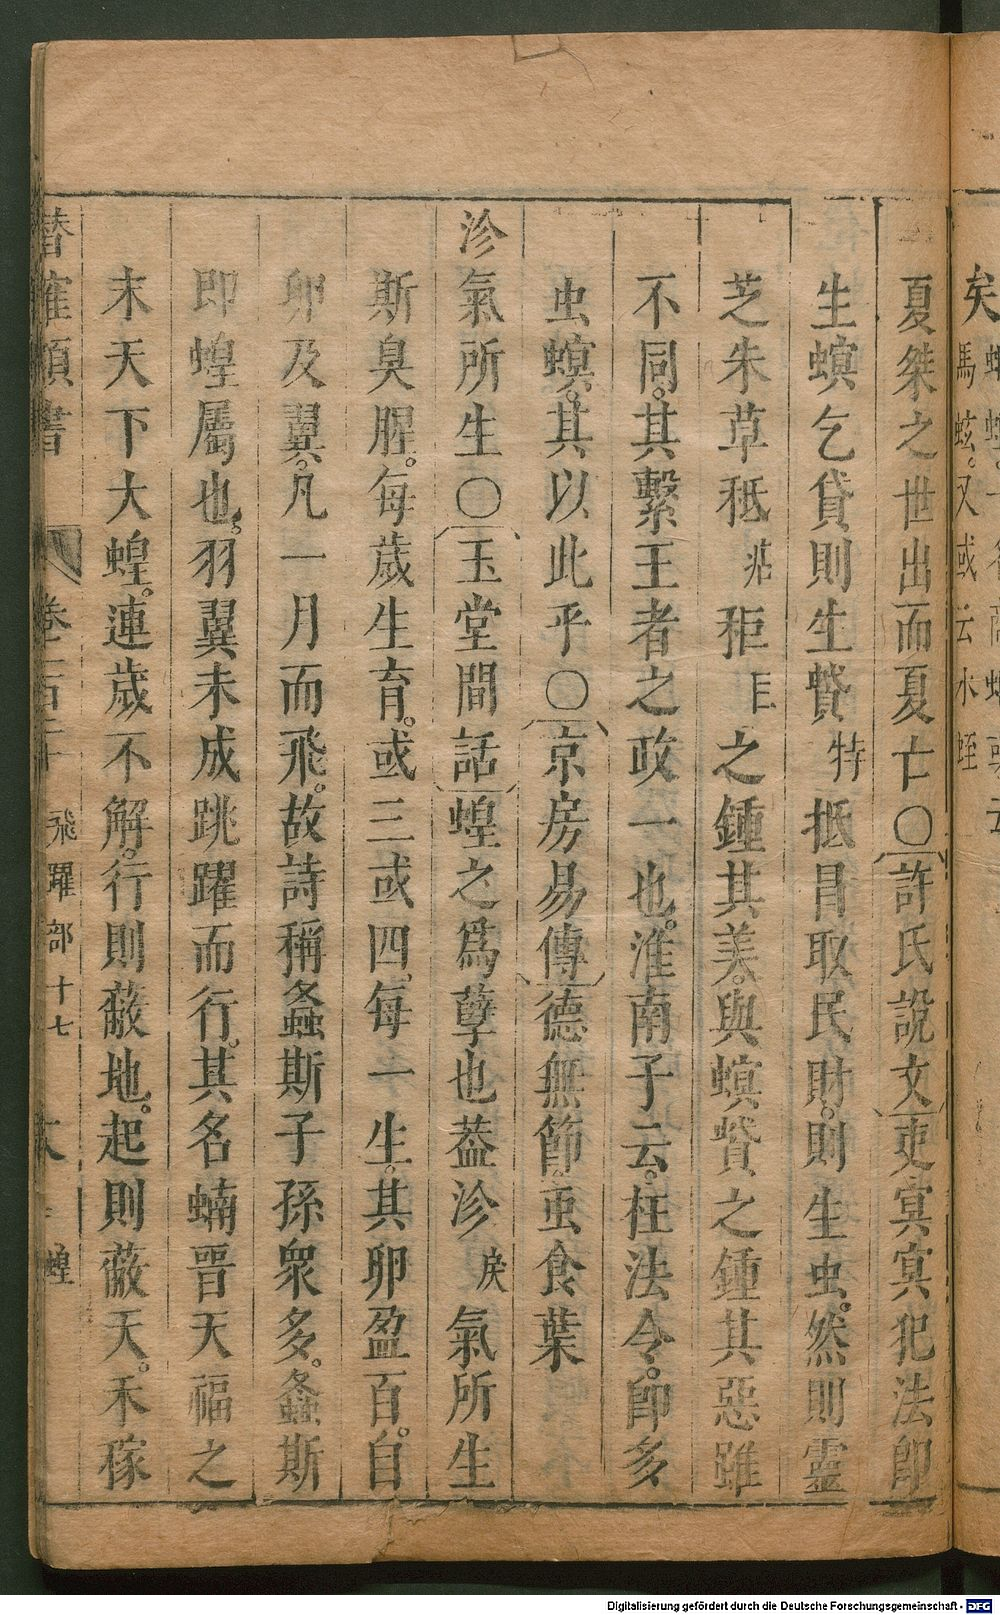 夏桀之世出而夏亡〇許氏説文吏冥冥犯法卽
生螟乞貸則生蟘特抵冒取民財則生虫然則靈
芝朱草秪秠秬巨之鍾其美與螟蟘之鍾其惡雖
不同其繫王者之政一也淮南子云枉法令卽多
虫螟其以此乎〇京房易傳德無節虫食葉
沴氣所生〇玉堂閒話蝗之爲孽也葢沴戾氣所生
斯臭腥每歲生育或三或四每一生其卵盈百自
卵及翼凡一月而飛故詩稱螽斯子孫衆多螽斯
即蝗屬也羽翼未成跳躍而行其名蝻晋天福之
末天下大蝗連歲不解行則蔽地起則蔽天禾稼
潛確類書 卷一百二十 飛躍部十七 蝗
馬蚿又或云水蛭
矣
Digitalisierung gefördert durch die Deutsche Forschungsgemeinschaft - DFG